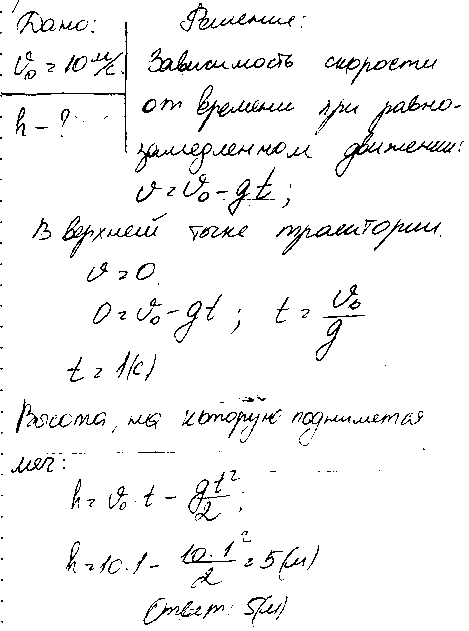 Дано:
v₀ = 10 м/с.
h - ?
Решение:
Зависимость скорости
от времени при равно-
замедленном движении:
v = v₀ - gt;
В верхней точке траектории.
v = 0.
0 = v₀ - gt; t = v₀/g
t = 1(с)
Высота, на которую поднимется
мяч:
h = v₀ · t - gt²/2;
h = 10 · 1 - 10 · 1²/2 = 5(м)
Ответ: 5(м)